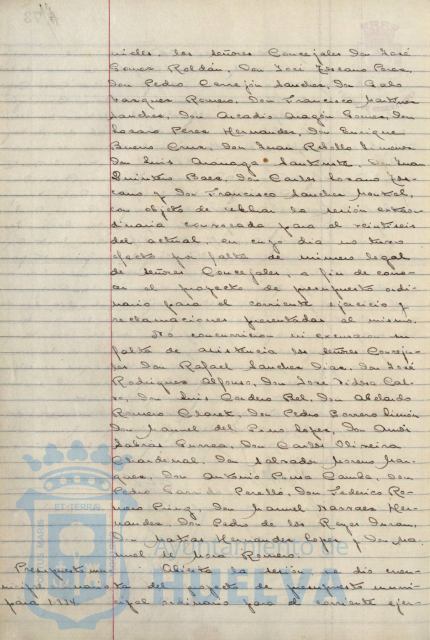 los señores Concejales Don José
Gómez Roldán, Don José Toscano Pérez,
Don Pedro Cerrejón Sánchez, Don
Vázquez Romero, Don Francisco Martínez
Sánchez, Don Arcadio Aragón Gómez, Don
Lázaro Pérez Hernández, Don Enrique
Bueno Cruz, Don Juan Rebollo Jimenez
Don Luis, Don Juan
Quintero Báez, Don Carlos Lozano
cano y Don Francisco Sánchez
con objeto de celebrar la sesión extraor
dinaria convocada para el veintiseis
del actual, en cuyo dia no tuvo
efecto por falta de número legal
de señores Concejales, a fin de cono-
cer el proyecto de presupuesto ordi-
nario para el corriente ejercicio y
reclamaciones presentadas al mismo.
No concurrieron ni excusaron su
falta de asistencia los señores Conceja-
les Don Rafael Sánchez Díaz, Don José
Rodríguez Alfonso, Don José Isidro
Don Luis Cordero Bel, Don Abelardo
Romero Claret, Don Pedro Borrero Limón
Don Manuel del Pino López, Don
Gurrea, Don Carlos Oliveira
Chardenal, Don Salvador Moreno Már-
quez, Don Antonio Pousa Camba, Don
Pedro Garrido Perelló, Don Federico Ro-
mero, Don Manuel Narváez Her-
nández, Don Pedro de los Reyes Durán,
Don Matías Hernández López y Don Ma-
nuel de Mora Romero.
Presupuesto mu- Abierta la sesión se dió cuen-
para 1934. ta del proyecto de presupuesto muni-
cipal ordinario para el corriente ejer-
Ayuntamiento de
HUELVA